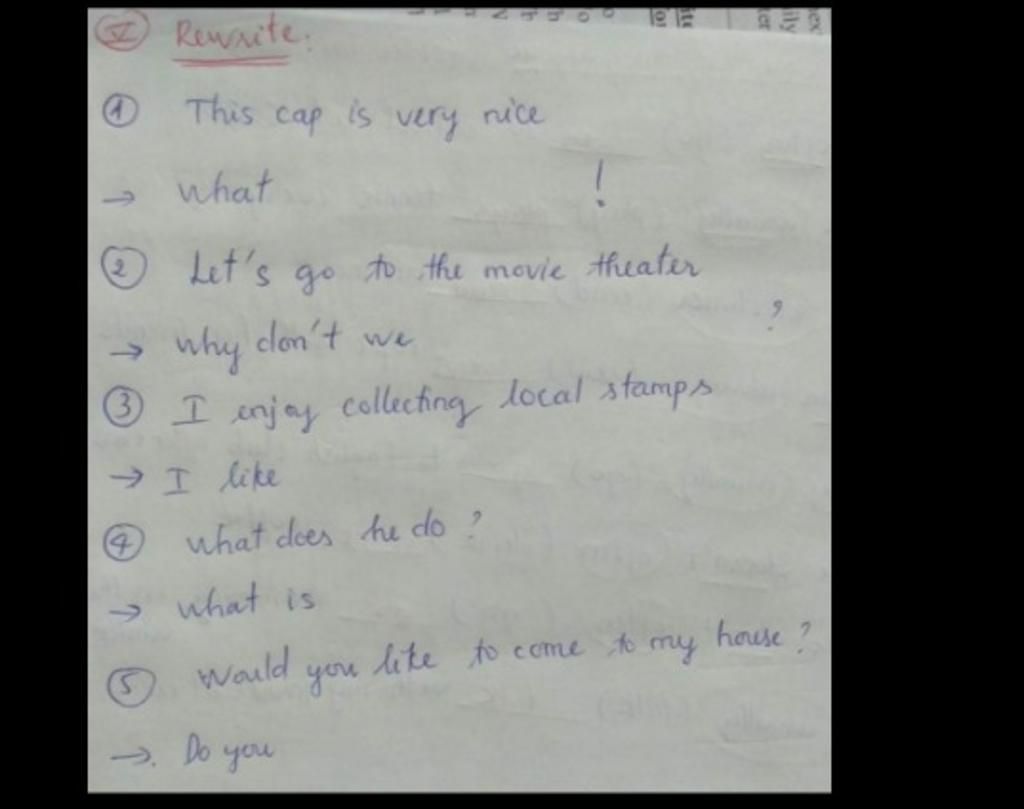 V Rewrite:
1 This cap is very nice
→ what !
2 Let's go to the movie theater
→ why don't we ?
3 I enjoy collecting local stamps
→ I like
4 what does he do ?
→ what is
5 Would you like to come to my house ?
→. Do you